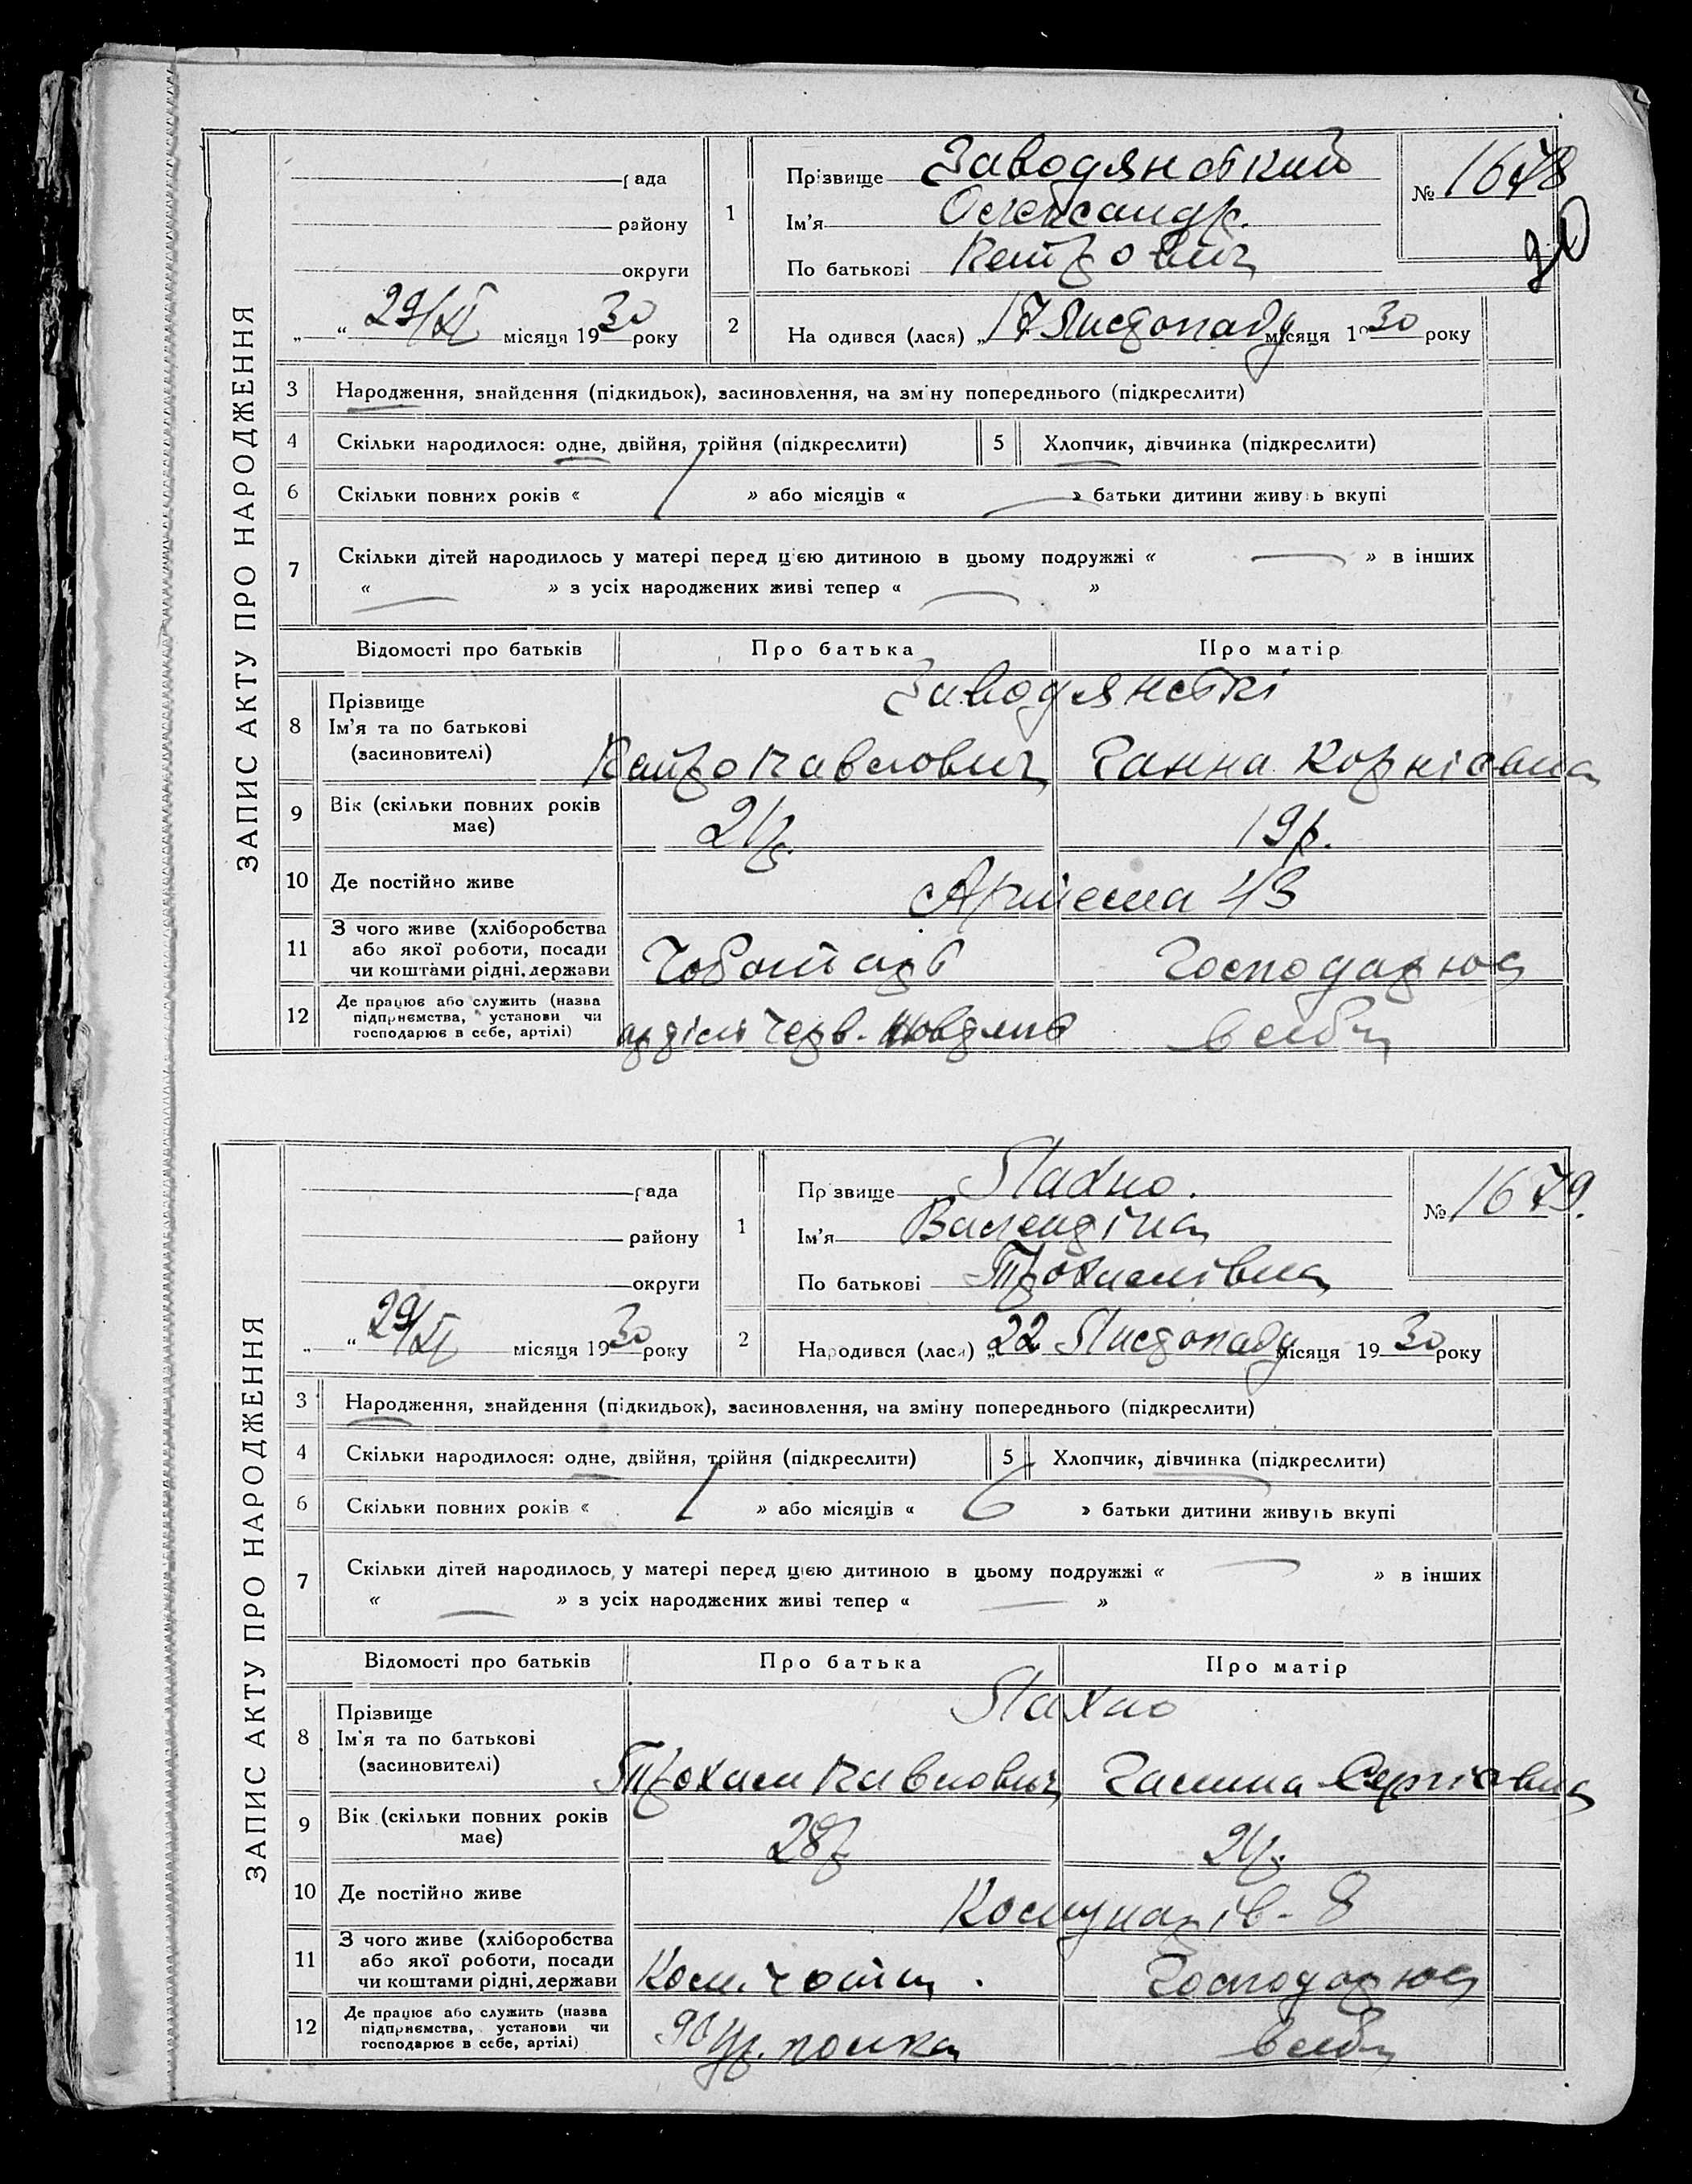 ЗАПИС АКТУ ПРО НАРОДЖЕННЯ
рада
району
округи
„ “ 29/XI місяця 1930 року
1
Прізвище Заводянський
Ім'я Олександр.
По батькові Петрович
№ 1678
30
2
На одився (лася) „17 Листопаду місяця 1930 року
3 Народження, знайдення (підкидьок), засиновлення, на зміну попереднього (підкреслити)
4 Скільки народилося: одне, двійня, трійня (підкреслити) 5 Хлопчик, дівчинка (підкреслити)
6 Скільки повних років « 1 » або місяців « — » батьки дитини живуть вкупі
7 Скільки дітей народилось у матері перед цією дитиною в цьому подружжі « — » в інших
« — » з усіх народжених живі тепер « — »
Відомості про батьків Про батька Про матір
8 Прізвище Заводянські
Ім'я та по батькові
(засиновителі) Петро Павлович Ганна Корніевна
9 Вік (скільки повних років 21р. 19р.
має)
10 Де постійно живе Артема 43
11 З чого живе (хліборобства
або якої роботи, посади Чоботарь Господарює
чи коштами рідні, держави
12 Де працює або служить (назва
підприємства, установи чи артіль Черв. в себе
господарює в себе, артілі)
ЗАПИС АКТУ ПРО НАРОДЖЕННЯ
рада
району
округи
„ “ 29/XI місяця 1930 року
1
Пр звище Лахно.
Ім'я Валендіна
По батькові Трохимівна
№ 1679.
2
Народився (лася) „22 Листопаду місяця 1930 року
3 Народження, знайдення (підкидьок), засиновлення, на зміну попереднього (підкреслити)
4 Скільки народилося: одне, двійня, трійня (підкреслити) 5 Хлопчик, дівчинка (підкреслити)
6 Скільки повних років « 1 » або місяців « 6 » батьки дитини живуть вкупі
7 Скільки дітей народилось у матері перед цією дитиною в цьому подружжі « — » в інших
« — » з усіх народжених живі тепер « — »
Відомості про батьків Про батька Про матір
8 Прізвище Лахно
Ім'я та по батькові
(засиновителі) Трохим Павлович Галина Сергіевна
9 Вік (скільки повних років 28р 21р.
має)
10 Де постійно живе Комунарів - 8
11 З чого живе (хліборобства
або якої роботи, посади Ком. роти. Господарює
чи коштами рідні, держави
12 Де працює або служить (назва
підприємства, установи чи полка в себе
господарює в себе, артілі)